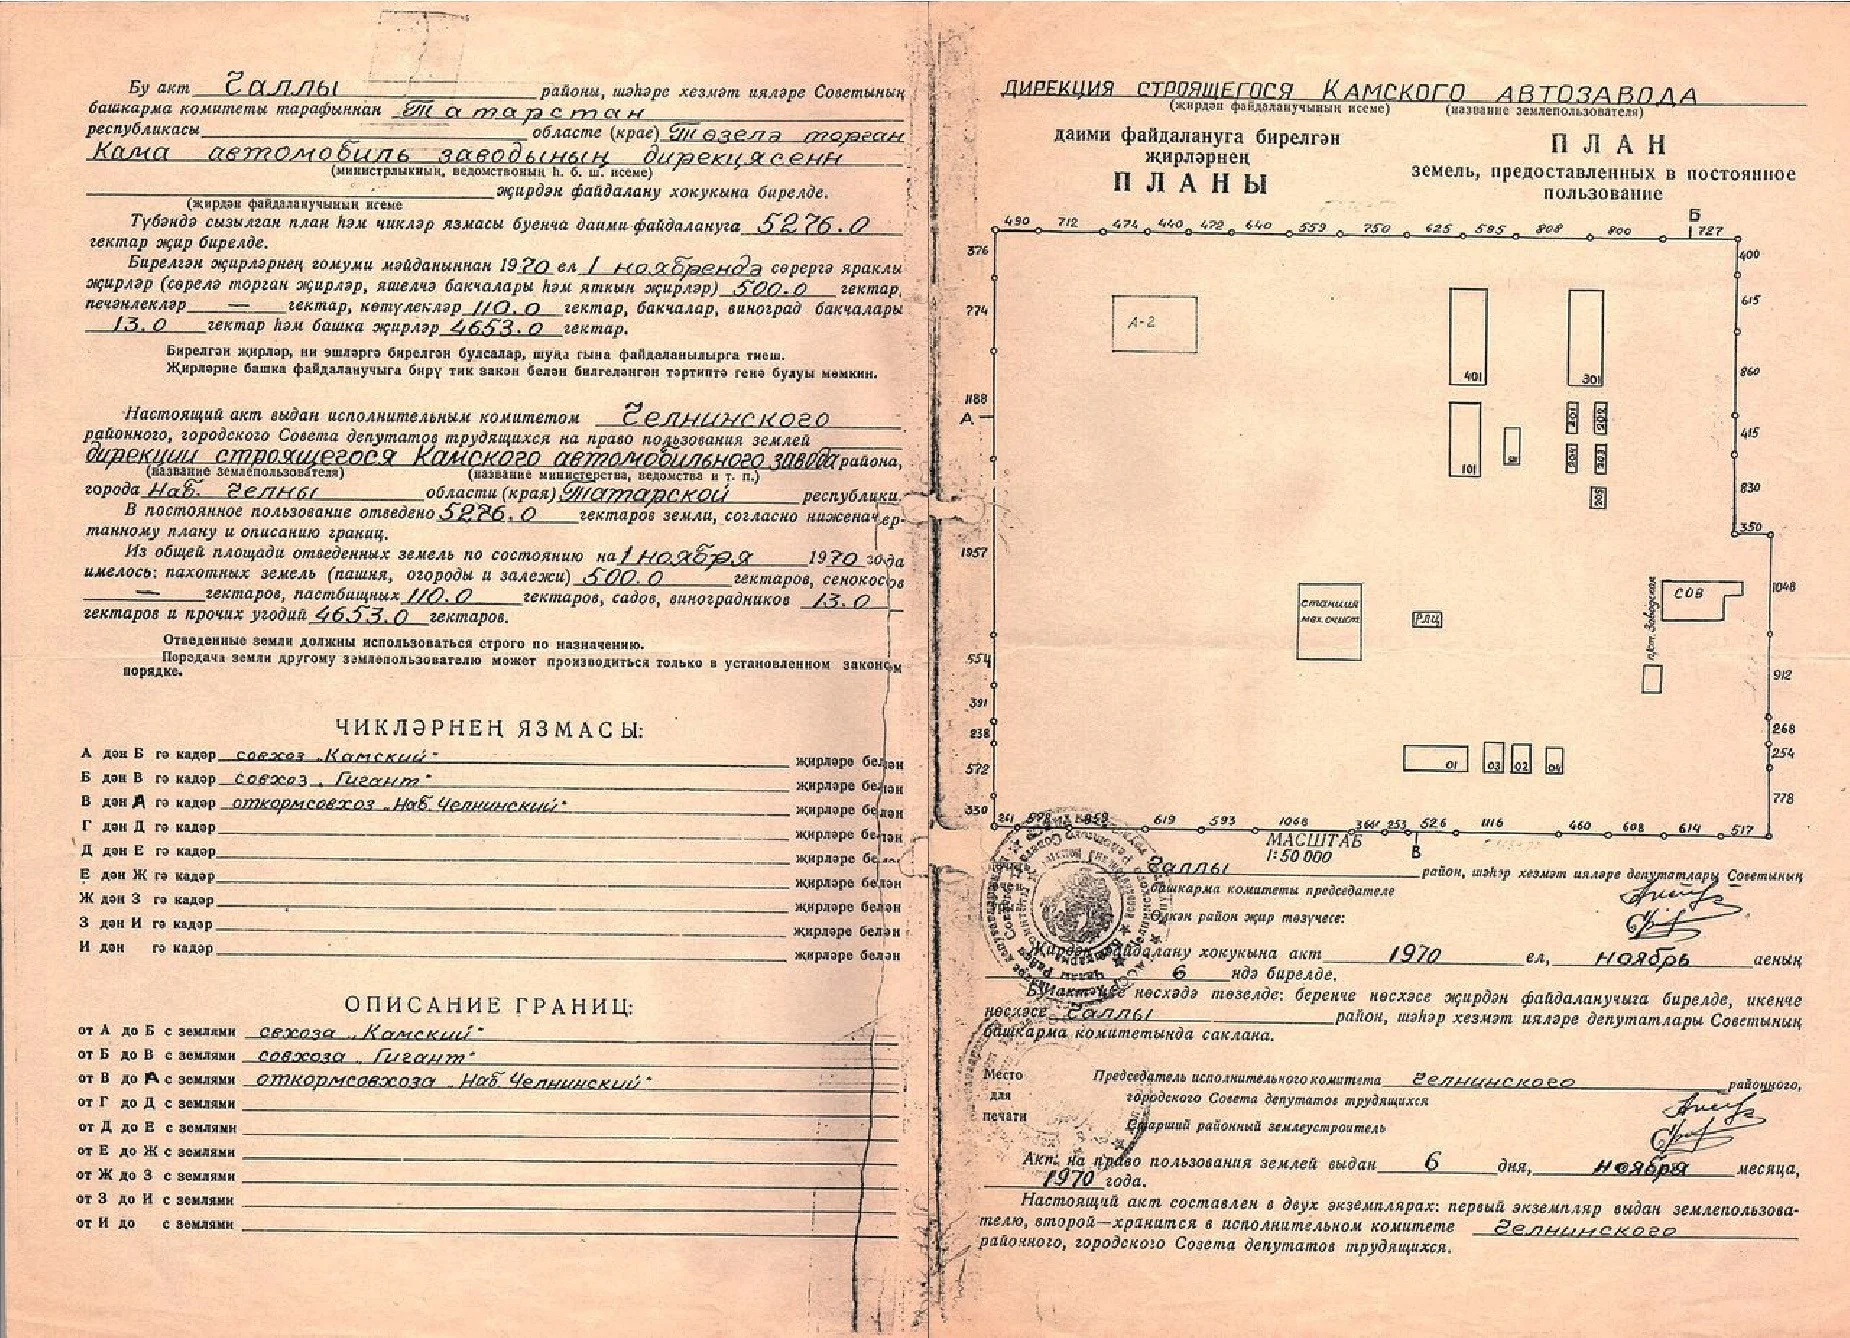 Бу акт Чаллы районы, шәһәре хезмәт ияләре Советының
башкарма комитеты тарафыннан Татарстан
республикасы областе (крае) Төзелә торган
Кама автомобиль заводының дирекциясенә
(министрлыкның, ведомствоның һ. б. ш. исеме)
җирдән файдалану хокукына бирелде.
(җирдән файдалануч­ының исеме
Түбәндә сызылган план һәм чикләр язмасы буенча даими файдалануга 5276.0
гектар җир бирелде.
Бирелгән җирләрнең гомуми мәйданыннан 1970 ел 1 ноябрендә сөрергә яраклы
җирләр (сөрелә торган җирләр, яшелчә бакчалары һәм яткын җирләр) 500.0 гектар,
печәнлекләр — гектар, көтүлекләр 110.0 гектар, бакчалар, виноград бакчалары
13.0 гектар һәм башка җирләр 4653.0 гектар.
Бирелгән җирләр, ни эшләргә бирелгән булсалар, шуңа гына файдаланылырга тиеш.
Җирләрне башка файдаланучыга бирү тик закон белән билгеләнгән тәртиптә генә булуы мөмкин.
Настоящий акт выдан исполнительным комитетом Челнинского
районного, городского Совета депутатов трудящихся на право пользования землей
дирекции строящегося Камского автомобильного завода района,
(название землепользователя) (название министерства, ведомства и т. п.)
города Наб. Челны области (края) Татарской республики.
В постоянное пользование отведено 5276.0 гектаров земли, согласно ниженачер-
танному плану и описанию границ.
Из общей площади отведенных земель по состоянию на 1 ноября 1970 года
имелось: пахотных земель (пашня, огороды и залежи) 500.0 гектаров, сенокосов
— гектаров, пастбищных 110.0 гектаров, садов, виноградников 13.0
гектаров и прочих угодий 4653.0 гектаров.
Отведенные земли должны использоваться строго по назначению.
Передача земли другому землепользователю может производиться только в установленном законом
порядке.
ЧИКЛӘРНЕҢ ЯЗМАСЫ:
А дән Б гә кадәр совхоз „Камский" җирләре белән
Б дән В гә кадәр совхоз „Гигант" җирләре белән
В дән А гә кадәр откормсовхоз „Наб. Челнинский" җирләре белән
Г дән Д гә кадәр җирләре белән
Д дән Е гә кадәр җирләре белән
Е дән Ж гә кадәр җирләре белән
Ж дән З гә кадәр җирләре белән
З дән И гә кадәр җирләре белән
И дән гә кадәр җирләре белән
ОПИСАНИЕ ГРАНИЦ:
от А до Б с землями свхоза „Камский"
от Б до В с землями совхоза „Гигант"
от В до А с землями откормсовхоза „Наб. Челнинский"
от Г до Д с землями
от Д до Е с землями
от Е до Ж с землями
от Ж до З с землями
от З до И с землями
от И до с землями
ДИРЕКЦИЯ СТРОЯЩЕГОСЯ КАМСКОГО АВТОЗАВОДА
(җирдән файдаланучының исеме) (название землепользователя)
даими файдалануга бирелгән
җирләрнең
ПЛАНЫ
ПЛАН
земель, предоставленных в постоянное
пользование
Б
490 712 474 440 472 640 559 750 625 595 808 800 727
376
400
774
615
860
1188
А
415
830
350
1957
1048
554
912
391
238
268
254
572
778
350
А-2
401
301
101
201
202
204
203
205
станция
мех. очист
РЛЦ
СОВ
пкт. Заводская
01
03
02
04
241 598 959 619 593 1068 366 253 526 1116 460 608 614 517
В
МАСШТАБ
1:50 000
Чаллы район, шәһәр хезмәт ияләре депутатлары Советының
башкарма комитеты председателе
Өлкән район җир төзүчесе:
файдалану хокукына акт 1970 ел, ноябрь аеның
6 ндә бирелде.
Бу акт ике нөсхәдә төзелде: беренче нөсхәсе җирдән файдаланучыга бирелде, икенче
нөсхәсе Чаллы район, шәһәр хезмәт ияләре депутатлары Советының
башкарма комитетында саклана.
Место
для
печати
Председатель исполнительного комитета Челнинского районного,
городского Совета депутатов трудящихся
Старший районный землеустроитель
Акт на право пользования землей выдан 6 дня, ноября месяца,
1970 года.
Настоящий акт составлен в двух экземплярах: первый экземпляр выдан землепользова-
телю, второй—хранится в исполнительном комитете Челнинского
районного, городского Совета депутатов трудящихся.